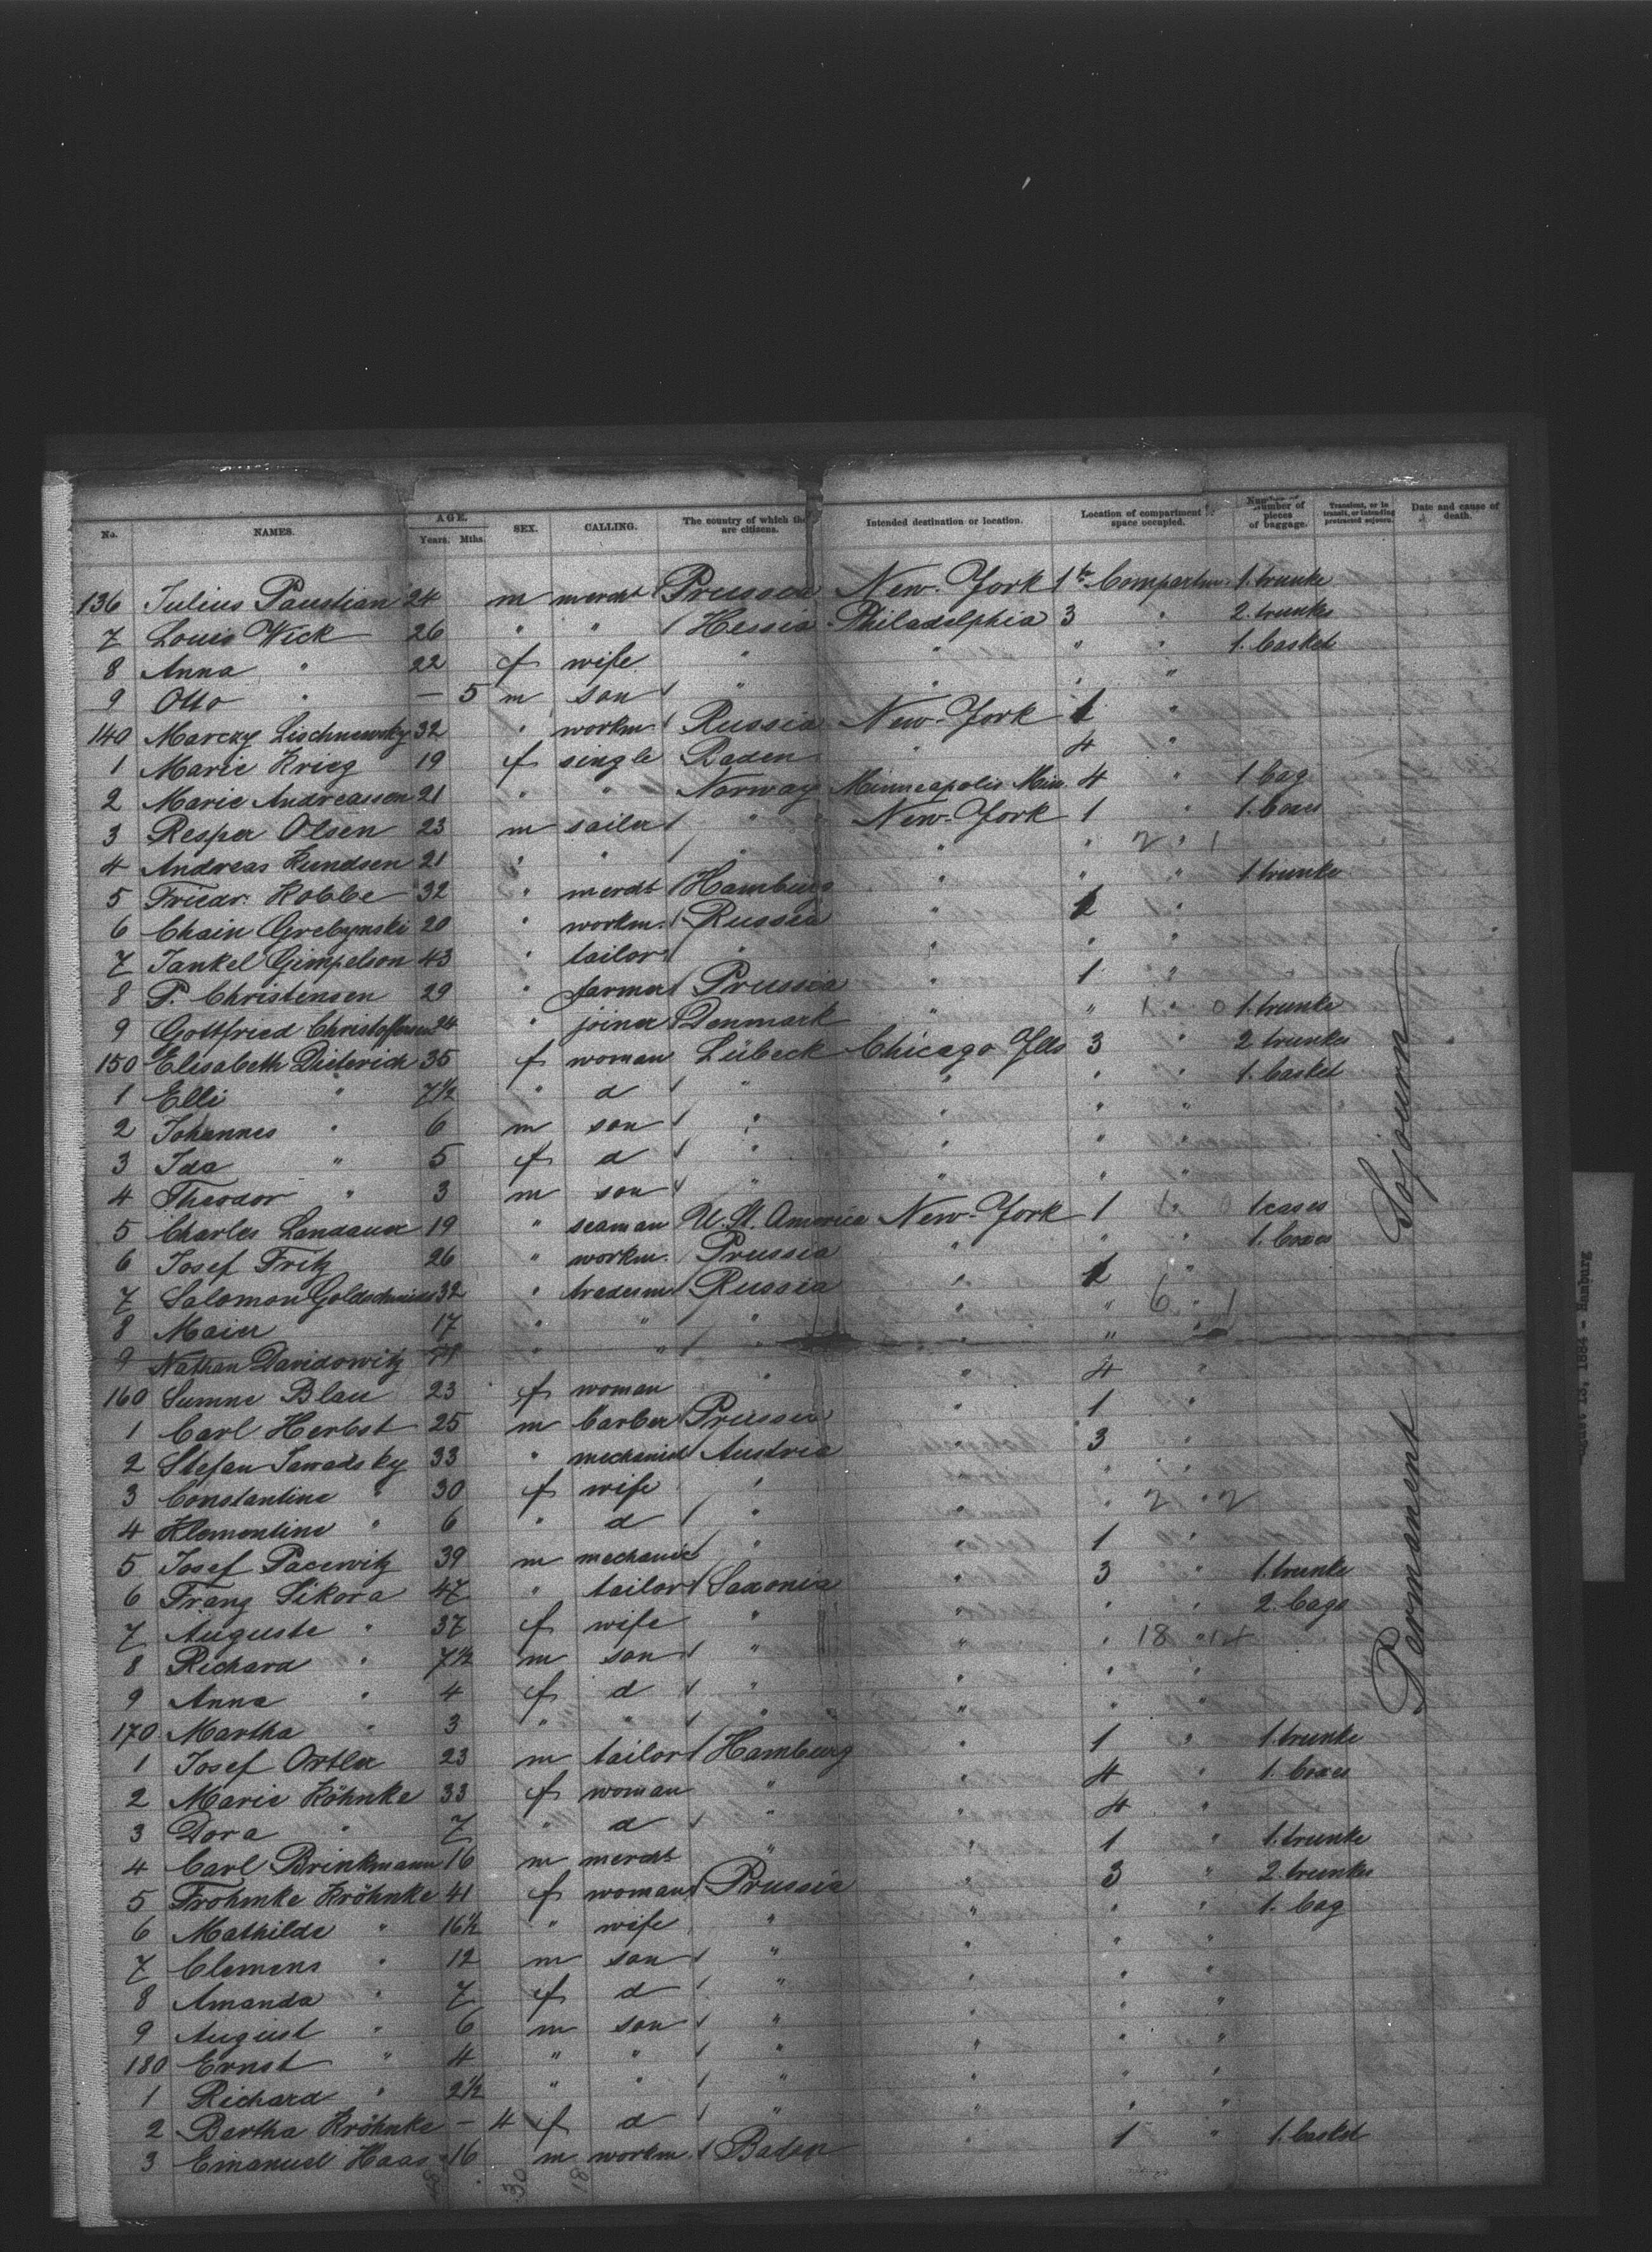 No. NAMES. AGE. Years. Mths. SEX. CALLING. The country of which they are citizens. Intended destination or location. Location of compartment space occupied. Number of pieces of baggage. Transient, or in transit, or intending protracted sojourn. Date and cause of death.
136 Julius Paustian 24 m merdt Prussia New-York 1 Compartm. 1. trunke
7 Louis Wick 26 " " Hessia Philadelphia 3 " 2. trunks
8 Anna " 22 f wife " " " " 1. basket
9 Otto " — 5 m son " " " "
140 Marczy Lischnewsky 32 " workm. Russia New-York 1 "
1 Marie Krieg 19 f single Baden " 4 "
2 Marie Andreassen 21 " " Norway Minneapolis Min. 4 " 1 bag
3 Resper Olsen 23 m sailer " New-York 1 " 1. boxes
4 Andreas Kundsen 21 " " " " " 2 " 1
5 Friedr. Kobbe 32 " merdt Hamburg " " " 1 trunke
6 Chain Grebynski 20 " workm. Russia " 1 "
7 Jankel Gimpelson 43 " tailor " " " "
8 P. Christensen 29 " farmer Prussia " 1 "
9 Gottfried Christoffersen 24 " joiner Denmark " " 1 " 0 1. trunke
150 Elisabeth Dieterich 35 f woman Lübeck Chicago Ills 3 " 2 trunks
1 Elli " 7½ " d " " " " 1. basket
2 Johannes " 6 m son " " " "
3 Ida " 5 f d " " " "
4 Theodor " 3 m son " " " "
5 Charles Landauer 19 " seaman U. St. America New-York 1 1 " 0 1 cases
6 Josef Fritz 26 " workm. Prussia " " " 1. boxes
7 Salomon Goldschmidt 32 " tradesm Russia " 1 "
8 Maier 17 " " " " " 6 " 1
9 Nathan Davidowitz " " " " " "
160 Sumne Blau 23 f woman " " 4 "
1 Carl Herbst 25 m barber Prussia " 1 "
2 Stefan Sawadsky 33 " mechanic Austria " 3 "
3 Constantine " 30 f wife " " " "
4 Klementine " 6 " d " " " 2 " 2
5 Josef Pacewitz 39 m mechanic " " 1 "
6 Franz Sikora 47 " tailor Saxonia " 3 " 1. trunke
7 Auguste " 37 f wife " " " " 2. bags
8 Richard " 7½ m son " " " 18 " 14
9 Anna " 4 f d " " " "
170 Martha " 3 " " " " " "
1 Josef Ortler 23 m tailor Hamburg " 1 " 1. trunke
2 Marie Köhnke 33 f woman " " 4 " 1. boxes
3 Dora " 7 " d " " 4 "
4 Carl Brinkmann 16 m merdt " " 1 " 1. trunke
5 Frohmke Kröhnke 41 f woman Prussia " 3 " 2. trunks
6 Mathilde " 16½ " wife " " " " 1. bag
7 Clemens " 12 m son " " " "
8 Amanda " 7 f d " " " "
9 August " 6 m son " " " "
180 Ernst " 4 " " " " " "
1 Richard " 2½ " " " " " "
2 Bertha Kröhnke — 4 f d " " " "
3 Emanuel Haas 16 m workm. Baden " 1 " 1. basket
30 18
Sojourn
Permanent
1884 - Hamburg